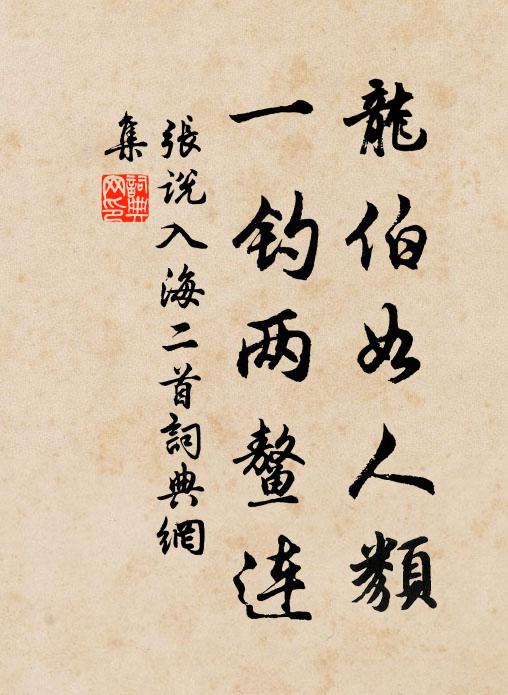 龍伯如人類
一钓两鳌连
張說入海二首詞典網
集
詞典
网印